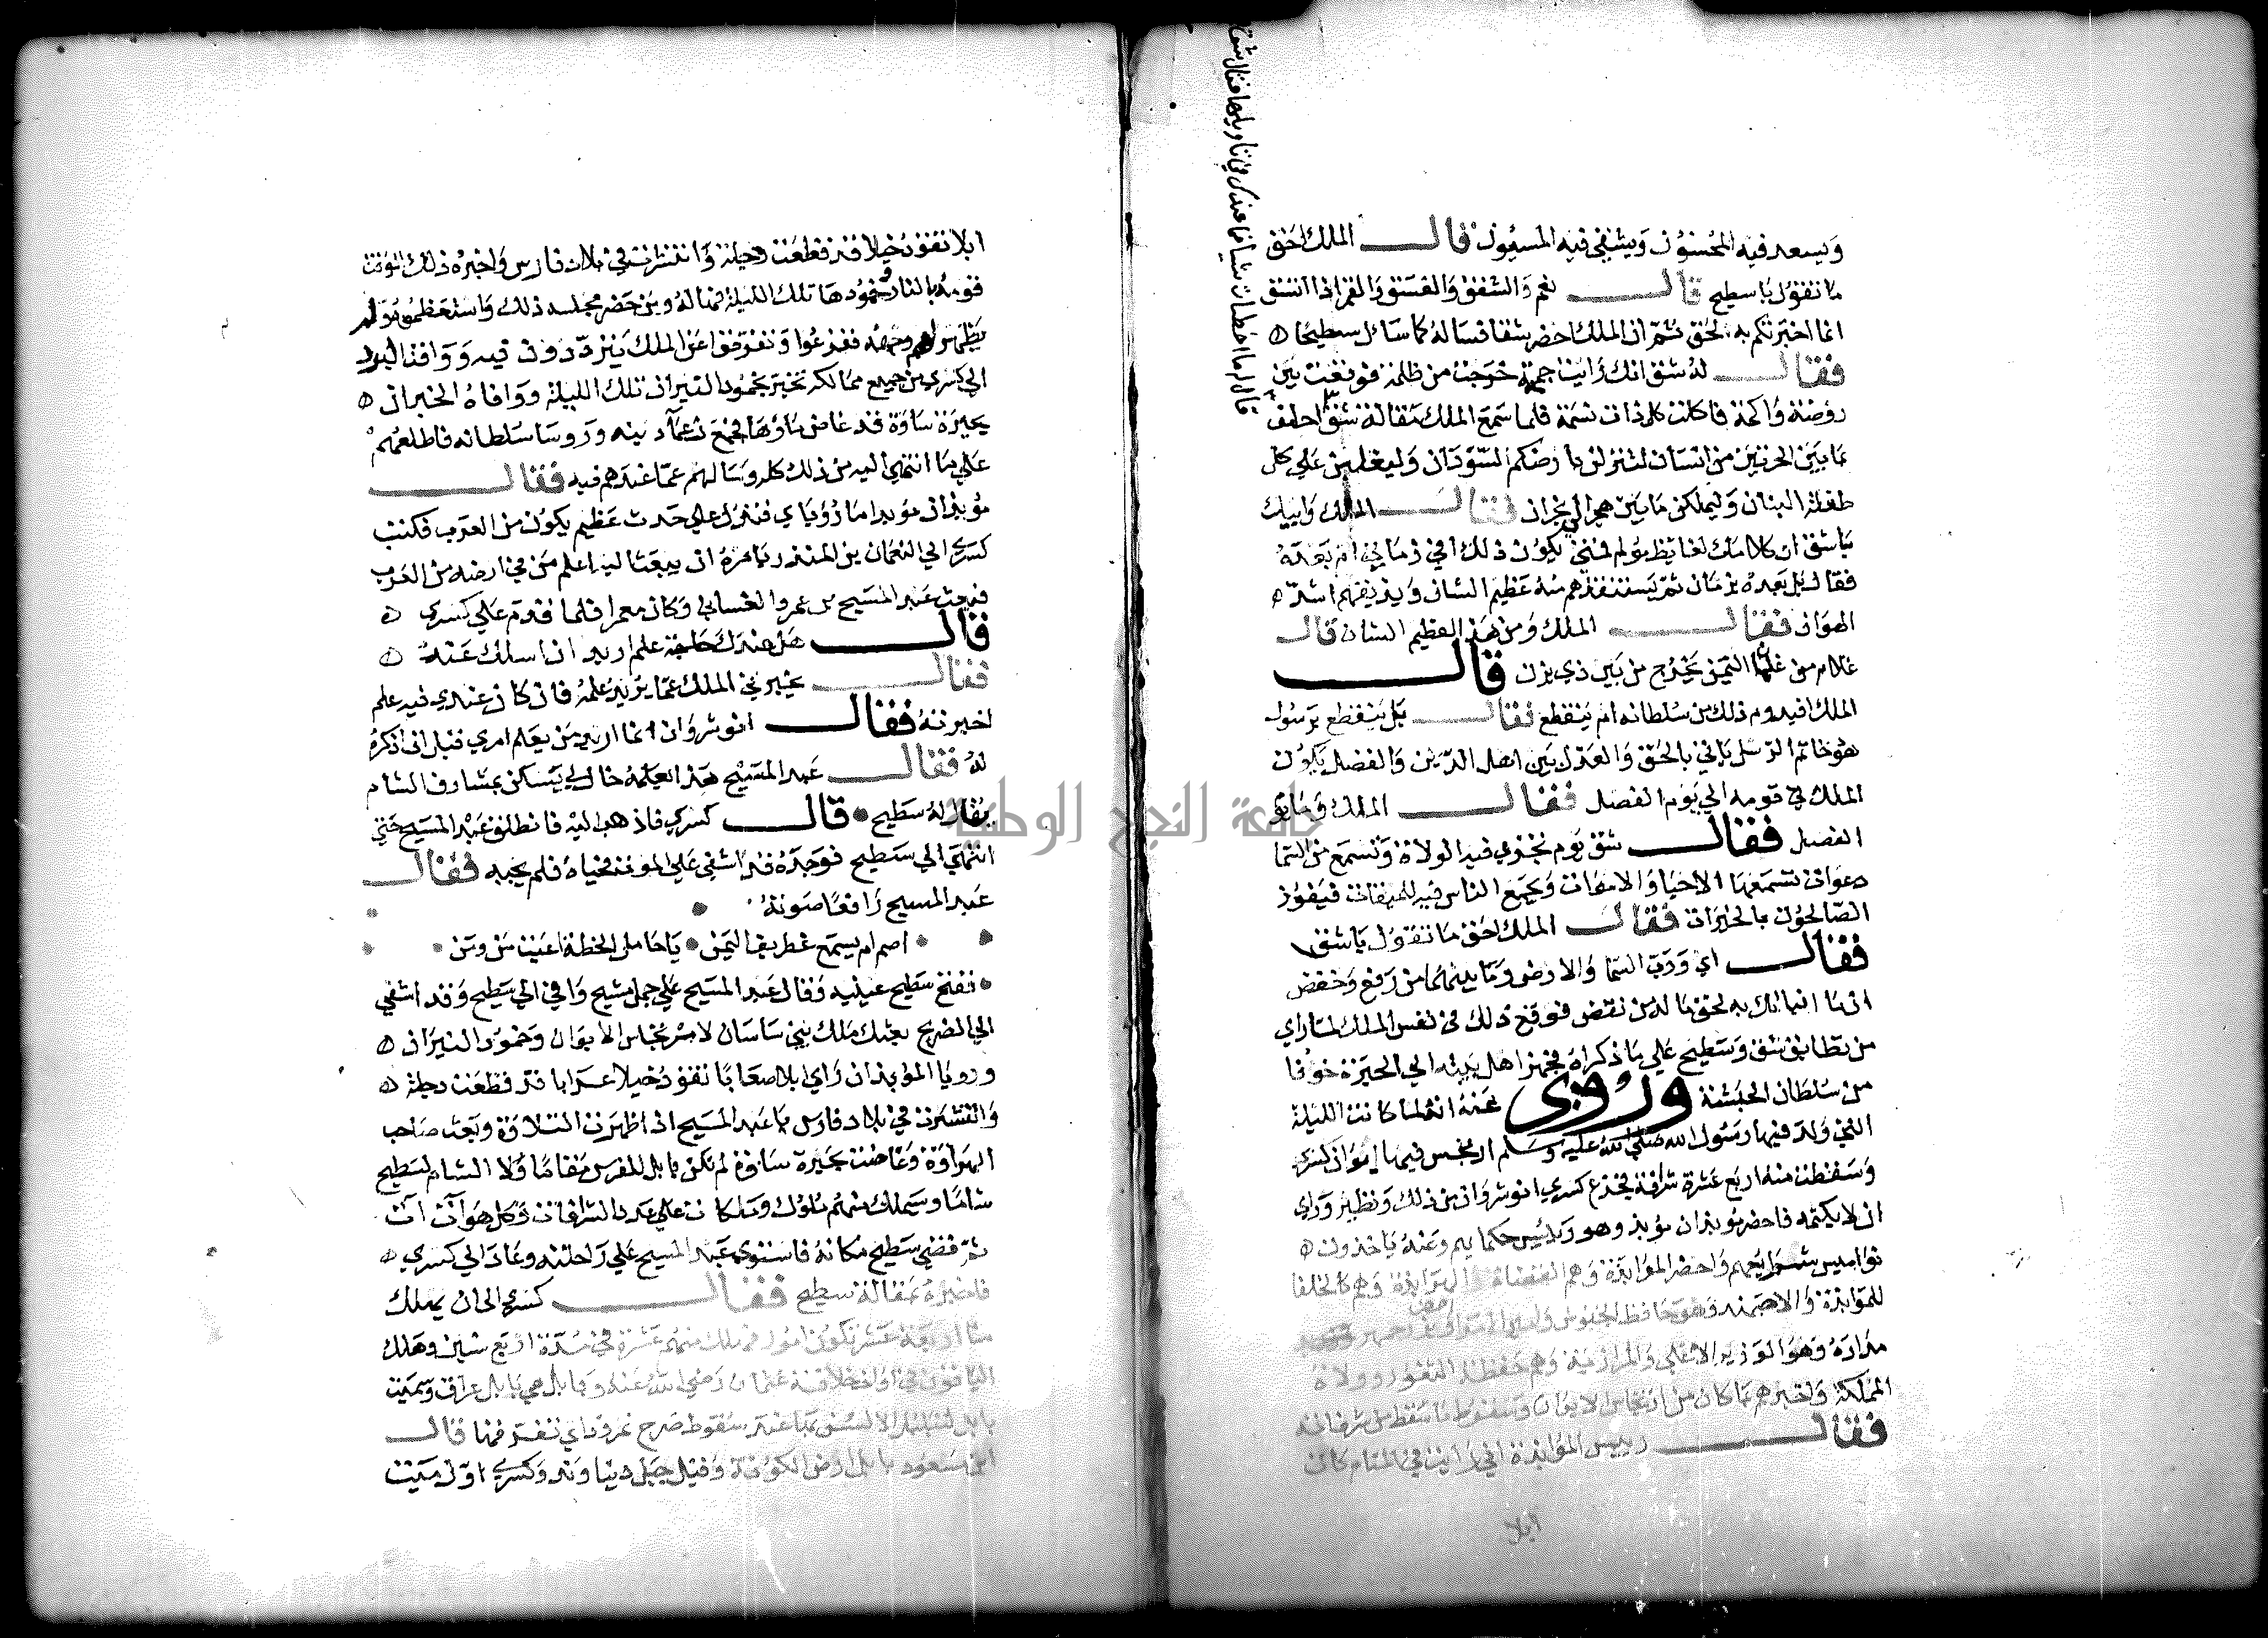 ويسعد فيه المحسنون ويشقي فيه المسيون قال الملك احق
ما تقول يا سطيح قال نعم والشفق والغسق والقمر اذا اتسق
انما اخبرتكم به لحق ثم ان الملك احضر شقا فساله كما سائل سطيحا
فقال له شق انك رايت جمجمة خرجت من ظلمة فوقعت بين
روضة واكمة فاكلت كل ذات نسمة فلما سمع الملك مقالة شق احلف
ما بين الحرتين من انسان لتنزلن بارضكم السودان وليغلبن علي كل
طفلة البنان وليملكن ما بين هجر الي نجران فقال الملك وابيك
يا شق ان كلامك لغايظ مولم فمتي يكون ذلك افي زماني ام بعده
فقال بل بعده بزمان ثم يستنقذهم منه عظيم الشان ويذيقهم اشد
الهوان فقال الملك ومن هذا العظيم الشان قال
غلام من غلما اليمن يخرج من بين ذي يزن قال
الملك افيدوم ذلك من سلطانه ام ينقطع فقال بل ينقطع برسول
هو خاتم الرسل ياتي بالحق والعدل بين اهل الدين والفضل يكون
الملك في قومه الي يوم الفصل فقال الملك وما يوم
الفصل فقال شق يوم تجزي فيه الولاة وتسمع من السما
دعوات تسمعها الاحيا والاموات ويجمع الناس فيه للميقات فيفوز
الصالحون بالخيرات فقال الملك احق ما تقول يا شق
فقال اي ورب السما والارض وما بينهما من رفع وخفض
ان ما انباتك به لحق ما له من نقض فوقع ذلك في نفس الملك لما راي
من تطابق شق وسطيح علي ما ذكراه فجهز اهل بيته الي الحيرة خوفا
من سلطان الحبشة وروي عنه انه لما كانت الليلة
التي ولد فيها رسول الله صلي الله عليه وسلم ارتجس فيها ايوان كسري
وسقطت منه اربع عشرة شرافة فجزع كسري انوشروان من ذلك وتطير وراي
ان لا يكتمه فاحضر موبذان موبذ وهو رئيس حكمايهم وعنه ياخذون
نواميس شرايعهم واحضر الموابذة وهم القضاة والهرابذة وهم كالخلفا
للموابذة والاصبهبد وهو حافظ الجيوش
مداره وهو الوزير الاعلي والمرازبة وهم حفظة الثغور وولاة
المملكة واخبرهم بما كان من ارتجاس الايوان وسقوط ما سقط من شرفاته
فقال رييس الموابذة اني رايت في المنام كان
ابلا
قال له ما اخطات شيا فما عندك في تاويلها فقال شق
ابلا تقود خيلا قد قطعت دجلة وانتشرت في بلاد فارس واخبره ذلك الوقت
قومة بالنار وخمودها تلك الليلة فهاله ومن حضر مجلسه ذلك واستعظموه ولم
يظهر لهم وجهه ففزعوا وتفرقوا عن الملك يترددون فيه ووافت البرد
الي كسري من جميع ممالكه تخبر بخمود النيران تلك الليلة ووافاه الخبر ان
بحيرة ساوة قد غاض ماوها فجمع زعما دينه وروسا سلطانه فاطلعهم
علي ما انتهي اليه من ذلك كله وسالهم عما عندهم فيه فقال
موبذان موبد اما رؤياي فتدل علي حدث عظيم يكون من العرب فكتب
كسري الي النعمان بن المنذر يامره ان يبعث اليه اعلم من في ارضه من العرب
فبعث عبد المسيح بن عمرو الغساني وكان معمرا فلما قدم علي كسري
قال هل عندك علم اريد ان اسلك عنه
فقال يخبرني الملك عما يريد علمه فان كان عندي فيه علم
اخبرته فقال انوشروان انما اريد من يعلم امري قبل ان اذكره
له فقال عبد المسيح هذا يعلمه خالي يسكن بمشارف الشام
يقال له سطيح قال كسري فاذهب اليه فانطلق عبد المسيح حتي
انتهي الي سطيح فوجده قد اشفي علي الموت فحياه فلم يجبه فقال
عبد المسيح رافعا صوته
اصم ام يسمع غطريف اليمن يا حامل الخطة اعيت من ومن
ففتح سطيح عينيه وقال عبد المسيح علي جمل مشيح وافي الي سطيح وقد اشفي
الي الضريح بعثك ملك بني ساسان لامر تجاس الايوان وخمود النيران
ورويا الموبذان راي ابلا صعابا تقود خيلا عرابا قد قطعت دجلة
وانتشرت في بلاد فارس يا عبد المسيح اذا ظهرت التلاوة وبعث صاحب
الهراوة وغاضت بحيرة ساوة لم تكن بابل للفرس مقاما ولا الشام لسطيح
شاما وسيملك منهم ملوك وملكات علي عدد الشرافات وكل هو ات ات
ثم قضي سطيح مكانه فاستوي عبد المسيح علي راحلته وعاد الي كسري
فاخبره بمقالة سطيح فقال كسري الي ان يملك
منا اربعة عشر تكون امور فملك منهم عشرة في مدة اربع سنين وهلك
الباقون في اول خلافة عثمان رضي الله عنه وبابل هي بابل عراق وسميت
بابل لتبلبل الالسن بها عند سقوط صرح نمروذ اي تفرقها قال
ابن مسعود بابل ارض الكوفة وقيل جبل دنباوند وكسري اول ميت
جامعة النجاح الوطنية